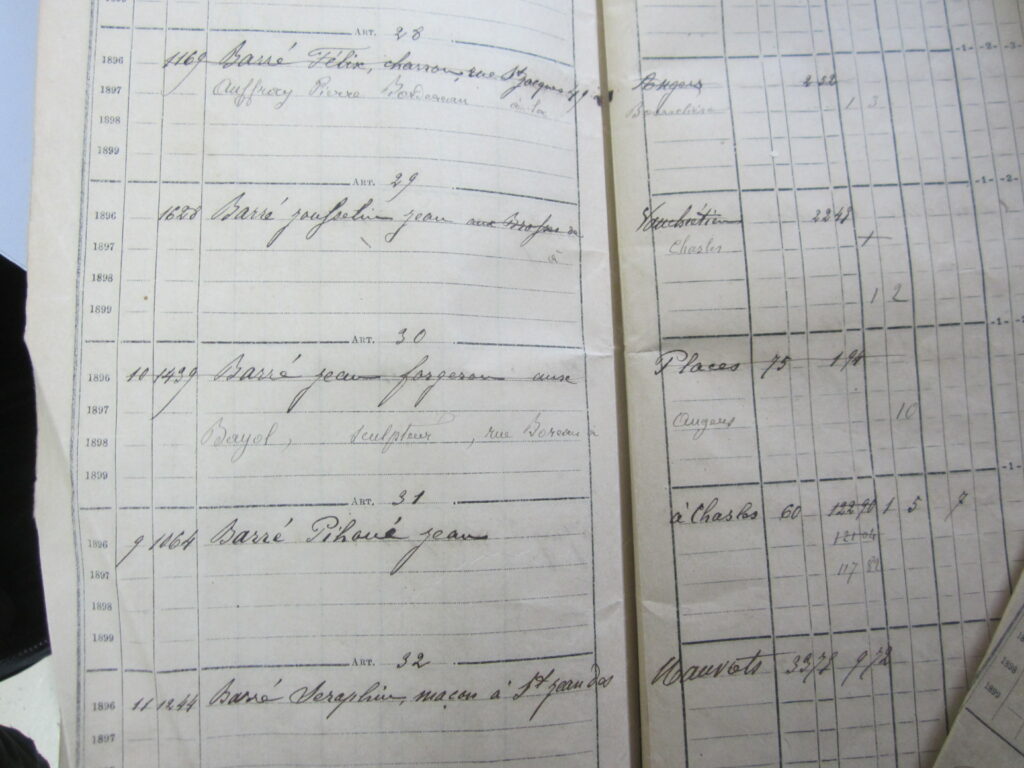 1895
ART. 28 -1- -2- -3-
1896 1169 Barré Félix, charron, rue St Jacques 49 Angers 2 22
1897 Auffray Pierre Bordereau à la 1 3
1898
1899
ART. 29 -1- -2-
1896 1628 Barré jousselin jean aux Vauchrétien 22 48
1897 à Charles 1
1898 1 2
1899
ART. 30 -1-
1896 10 1439 Barré jean forgeron aux Places 75 1 98
1897 Angers 10
1898 Bayol, sculpteur, rue Boreau à
1899 -1-
ART. 31
1896 9 1064 Barré Pihoué jean à Charles 60 122 90 1 5 7
121 04
1897 117 82
1898
1899
ART. 32
1896 11 1244 Barré Séraphin, maçon à St jean des Mauvrets 33 78 9 72
1897
1898
1899